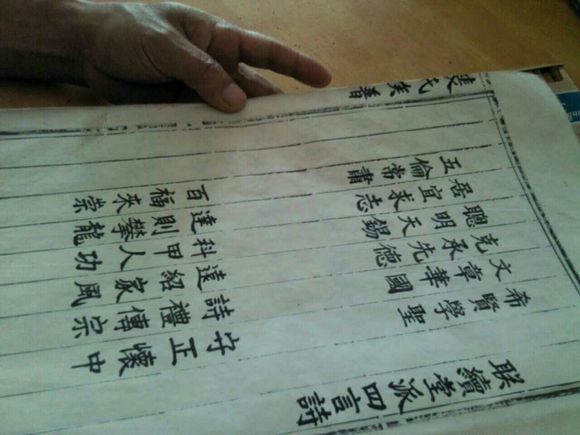 联續堂派四言詩
希賢學聖 守正懷中
文章華國 詩禮傳宗
克承先德 遠紹家風
聰明天錫 科甲人功
居宜求志 達則攀龍
五倫常肅 百福來崇